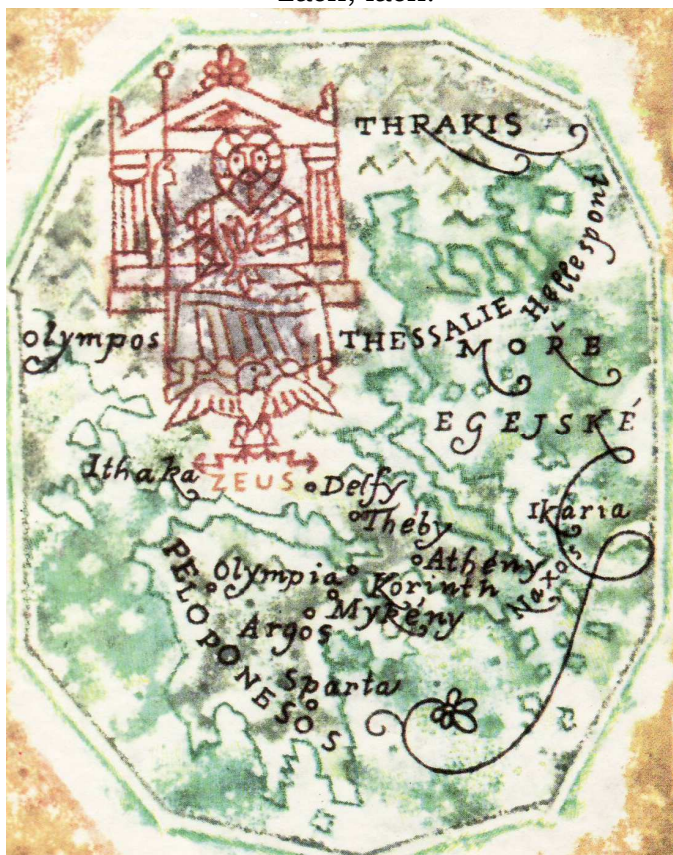 THRAKIS
Hellespont
Olympos
THESSALIE
MOŘE
EGEJSKÉ
Ithaka
ZEUS
Delfy
Théby
Ikária
Athény
Naxos
Olympia
Korinth
Mykény
Argos
PELOPONESOS
Sparta